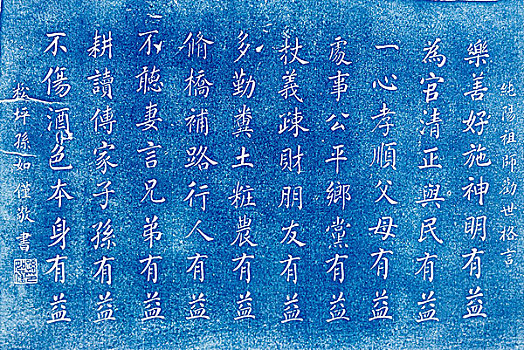 純陽祖師勸世格言
樂善好施神明有益
為官清正與民有益
一心孝順父母有益
處事公平鄉黨有益
杖義疎財朋友有益
多勤糞土粧農有益
脩橋補路行人有益
不聽妻言兄弟有益
耕讀傳家子孫有益
不傷酒色本身有益
松坪孫如僅敬書